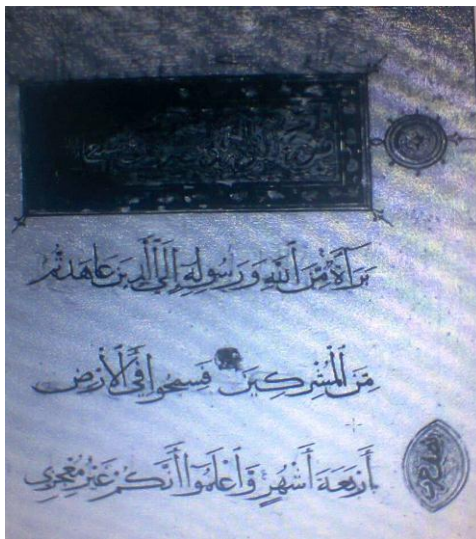 بَرَآءَةٌ مِّنَ ٱللَّهِ وَرَسُولِهِ إِلَى ٱلَّذِينَ عَاهَدتُّم
مِّنَ ٱلْمُشْرِكِينَ فَسِيحُوا فِي ٱلْأَرْضِ
أَرْبَعَةَ أَشْهُرٍ وَٱعْلَمُوٓا أَنَّكُمْ غَيْرُ مُعْجِزِي